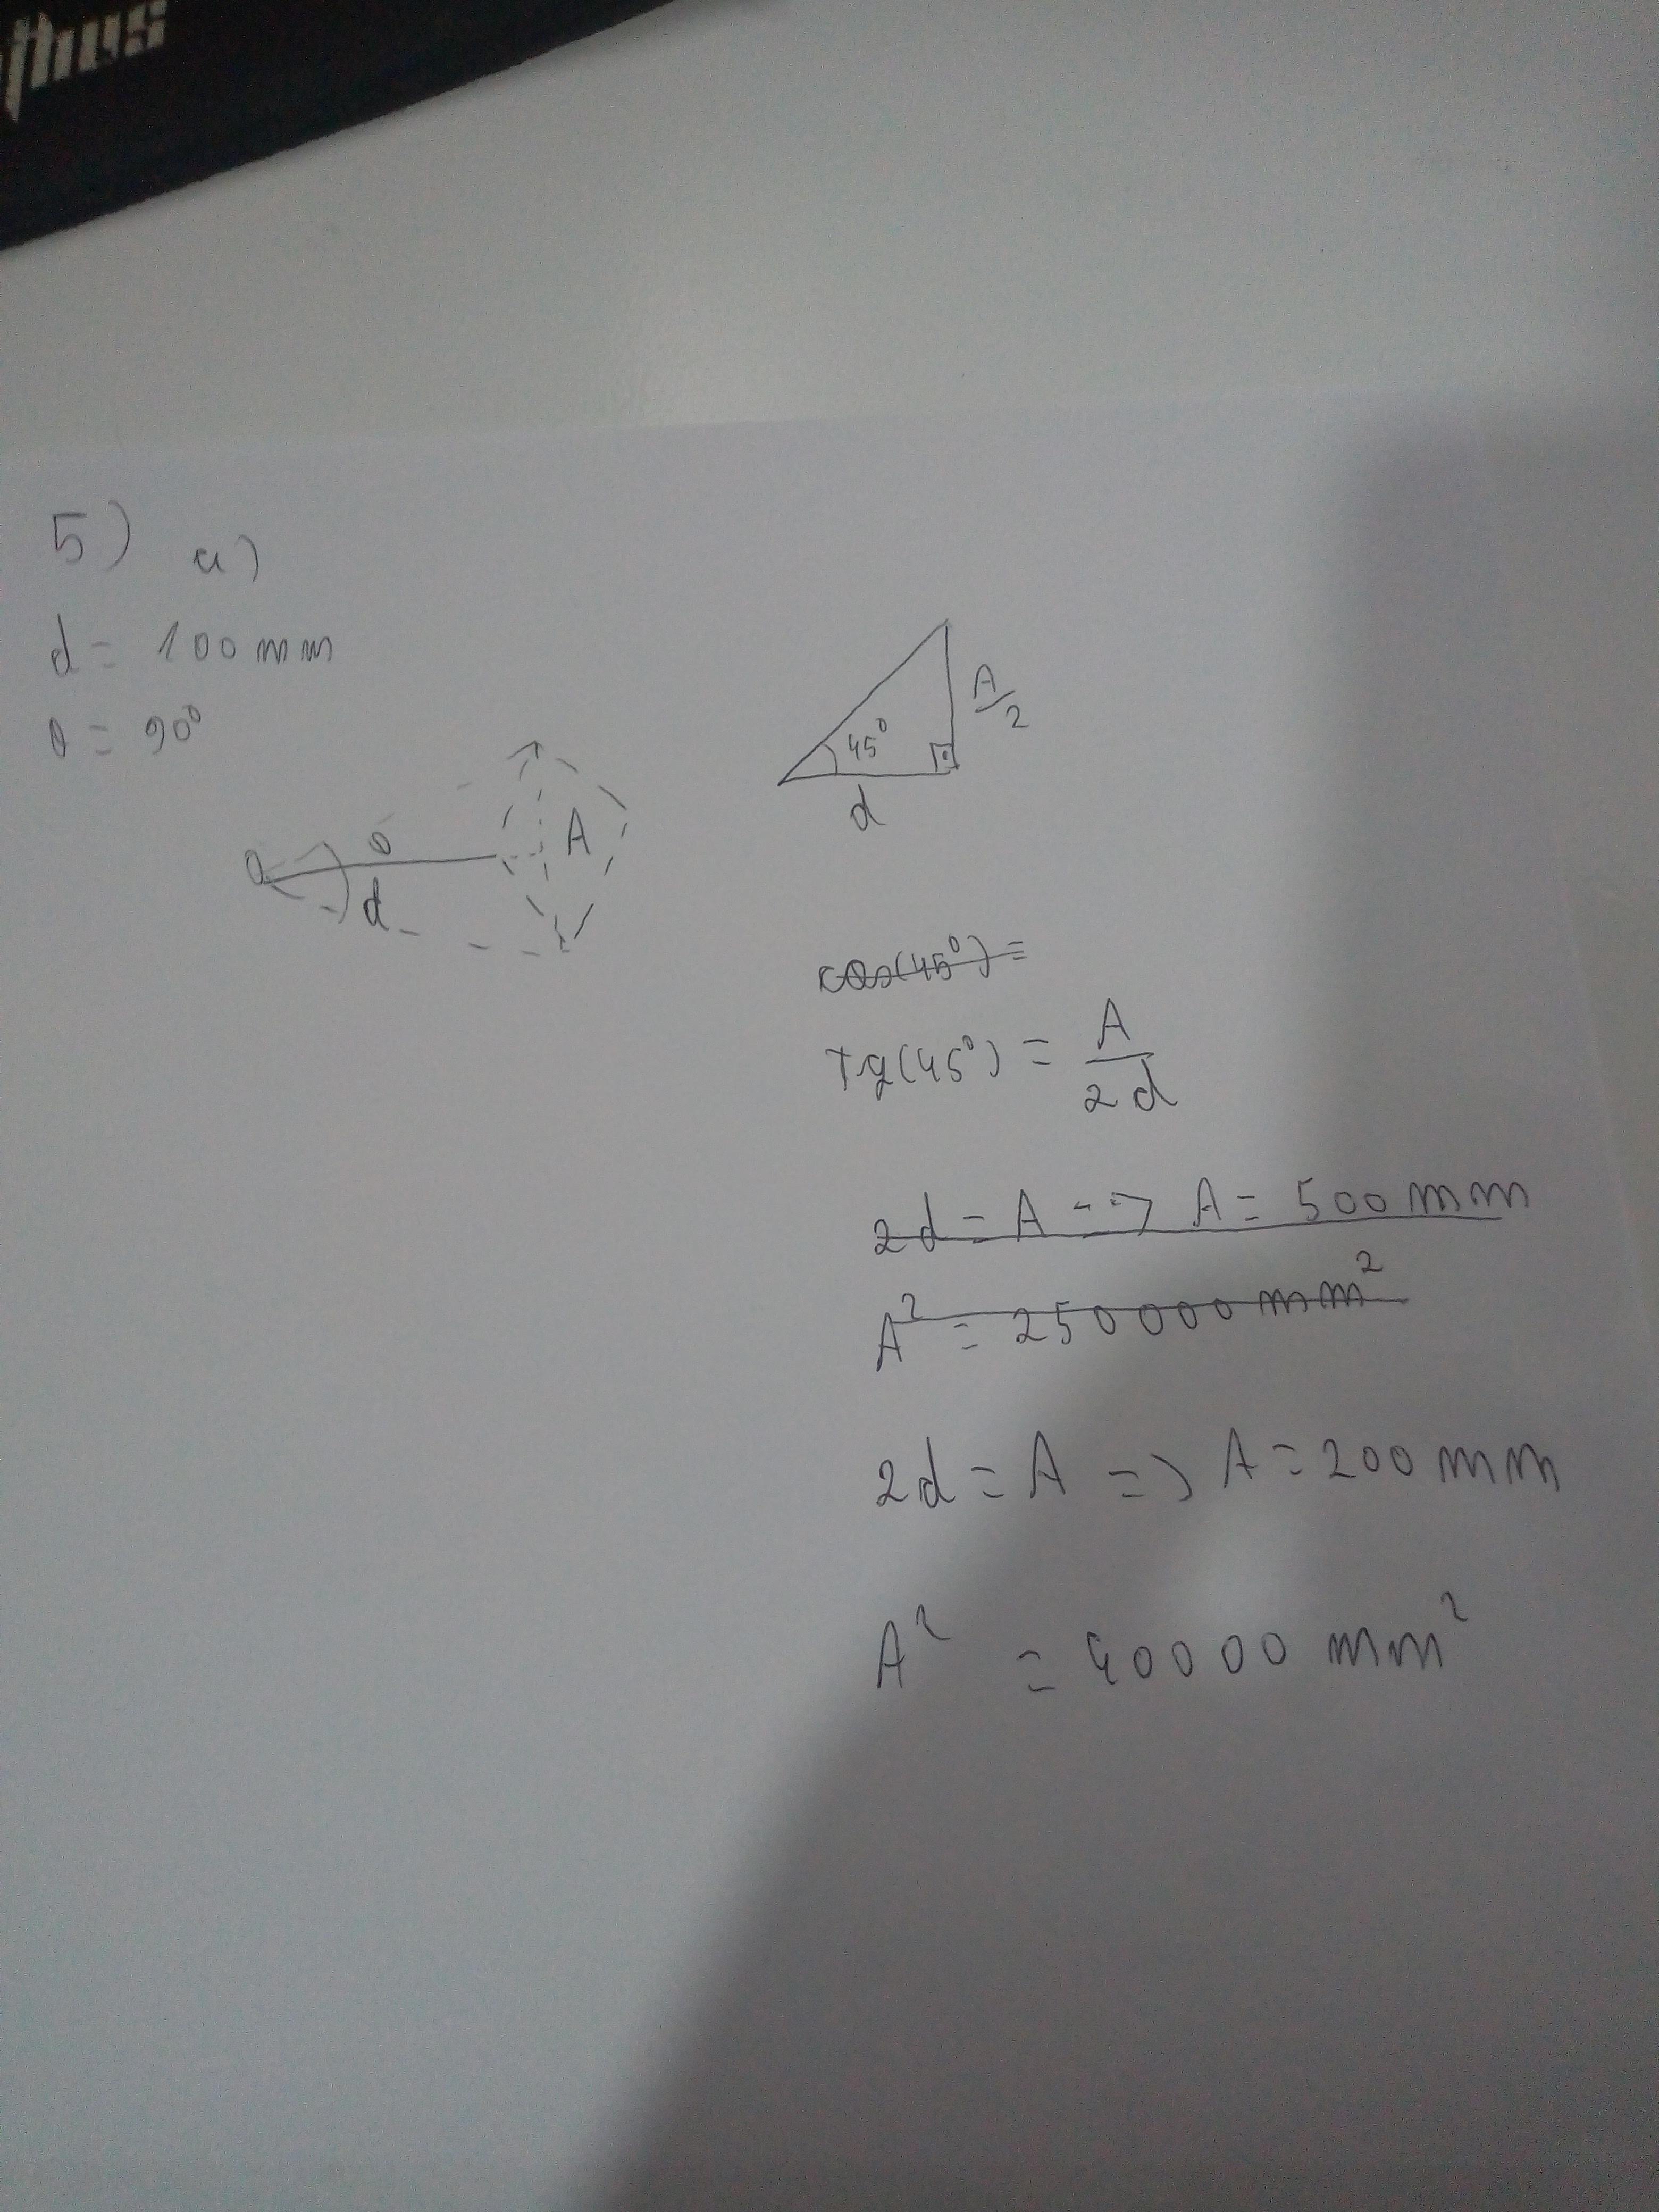 5) a)
d = 100 mm
θ = 90°
θ
d
A
45°
A/2
d
cos(45°) =
tg(45°) = A/2d
2d = A --> A = 500 mm
A² = 250000 mm²
2d = A => A = 200 mm
A² = 40000 mm²